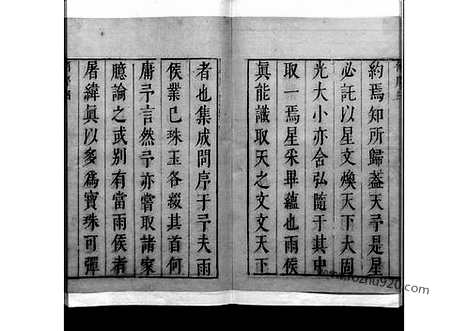 約焉知所歸蓋天予是星
必託以星文煥天下大固
光大小亦合弘隨于其中
取一焉星采畢蘊也雨侯
眞能讖取天之文文天下
者也集成問序于予夫雨
侯業已珠玉各綴其首何
庸予言然予亦嘗取諸家
臆論之或别有當雨侯者
屠緯眞以多爲寶珠可彈